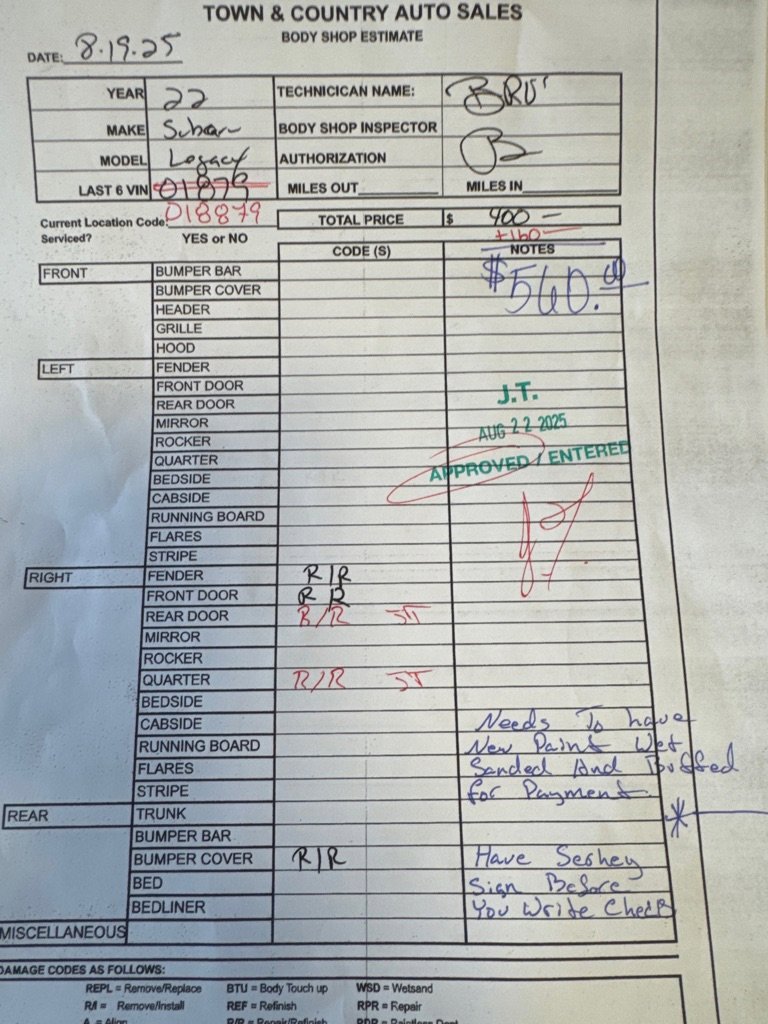 TOWN & COUNTRY AUTO SALES
BODY SHOP ESTIMATE
DATE: 8.19.25
YEAR 22 TECHNICICAN NAME: BRU
MAKE Subaru BODY SHOP INSPECTOR
MODEL Legacy AUTHORIZATION
LAST 6 VIN 01875 MILES OUT MILES IN
Current Location Code: 018879 TOTAL PRICE $ 400 —
Serviced? YES or NO +160 —
CODE (S) NOTES
FRONT BUMPER BAR $560.00
BUMPER COVER
HEADER
GRILLE
HOOD
LEFT FENDER
FRONT DOOR
REAR DOOR J.T.
MIRROR AUG 22 2025
ROCKER
QUARTER APPROVED / ENTERED
BEDSIDE
CABSIDE
RUNNING BOARD
FLARES
STRIPE
RIGHT FENDER R/R
FRONT DOOR R R
REAR DOOR R/R JT
MIRROR
ROCKER
QUARTER R/R JT
BEDSIDE
CABSIDE Needs To have
RUNNING BOARD New Paint Wet
FLARES Sanded And Buffed
STRIPE for Payment
REAR TRUNK *
BUMPER BAR
BUMPER COVER R/R Have Serhey
BED Sign Before
BEDLINER You Write Check
MISCELLANEOUS
DAMAGE CODES AS FOLLOWS:
REPL = Remove/Replace BTU = Body Touch up WSD = Wetsand
R/I = Remove/Install REF = Refinish RPR = Repair
A = Align R/R = Repair/Refinish PDR = Paintless Dent